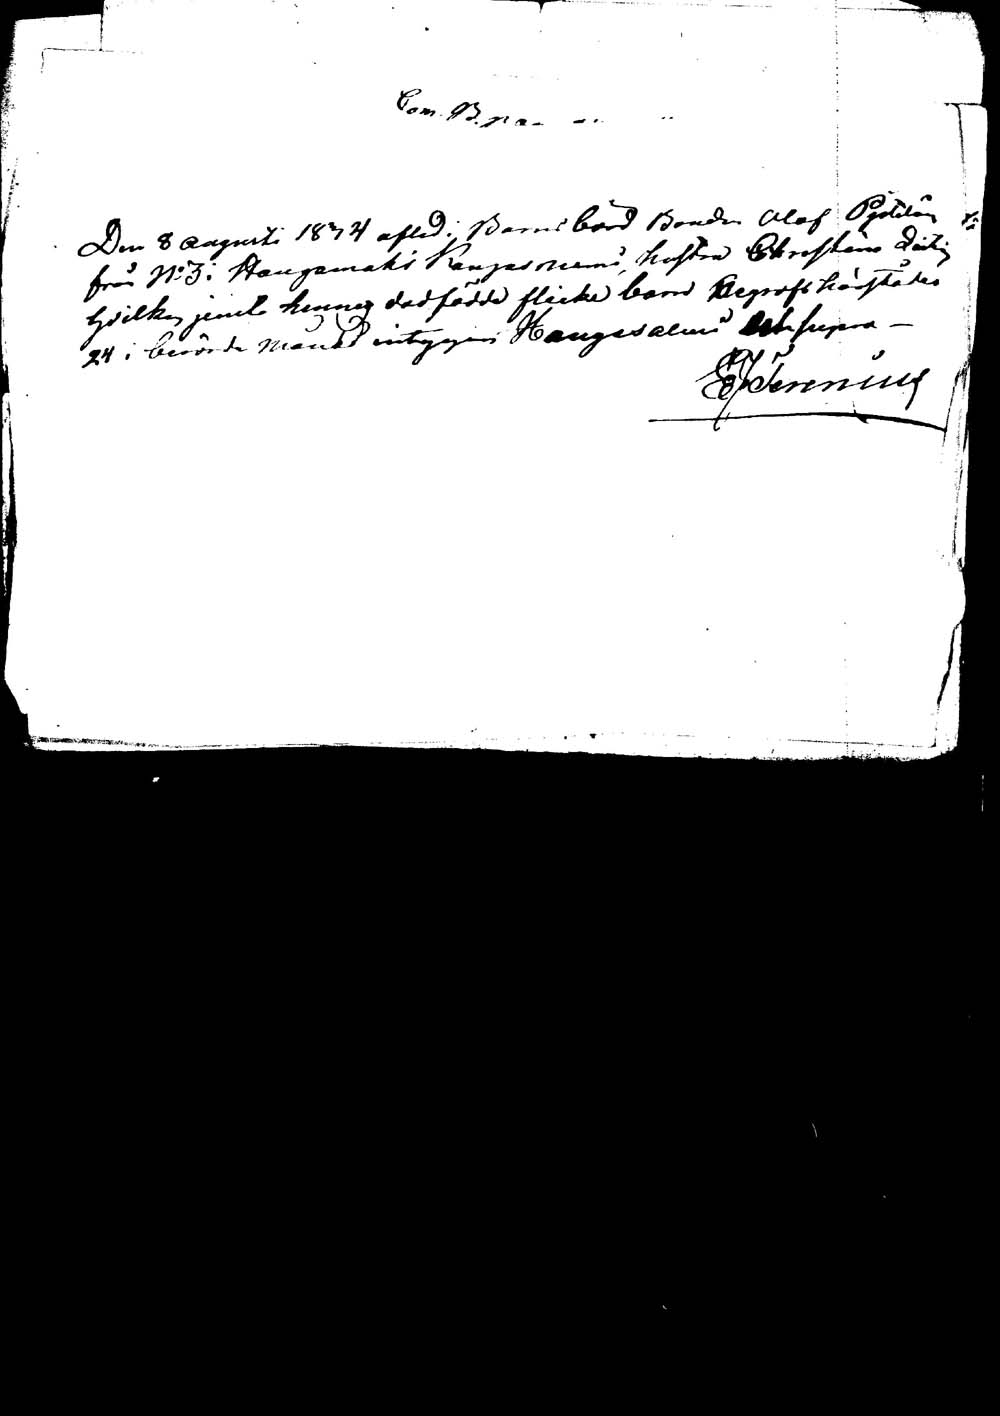 Com. B.
Den 8 augusti 1874 afled i Barnsbörd Bonden Olof Pyölden
från No 3 i Haugamäki Kangasniemi, hustru Christina
hvilken jemte hennes dödfödde flicke barn begrofs härstädes
24 i berörde månad intygar Hangasalmi ut supra —